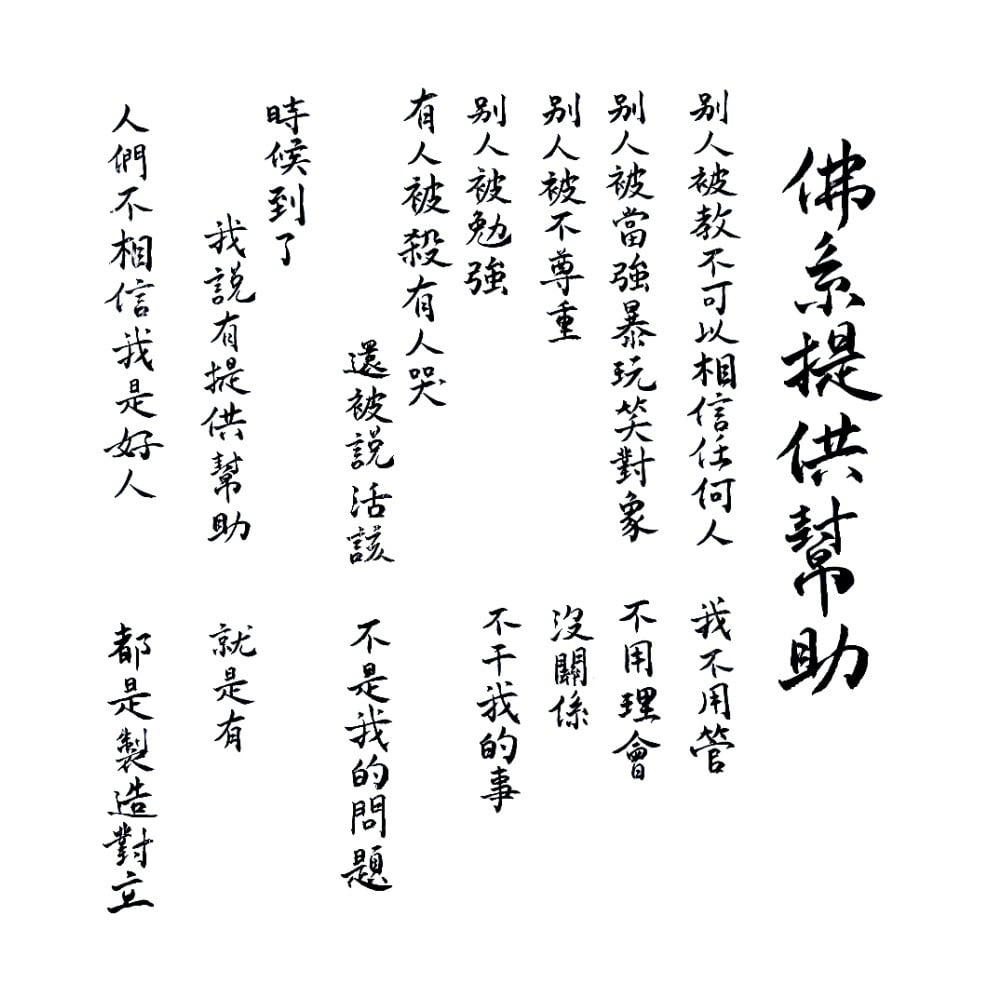 佛系提供幫助
別人被教不可以相信任何人 我不用管
別人被當強暴玩笑對象 不用理會
別人被不尊重 沒關係
別人被勉強 不干我的事
有人被殺有人哭
還被説活該 不是我的問題
時候到了
我説有提供幫助 就是有
人們不相信我是好人 都是製造對立